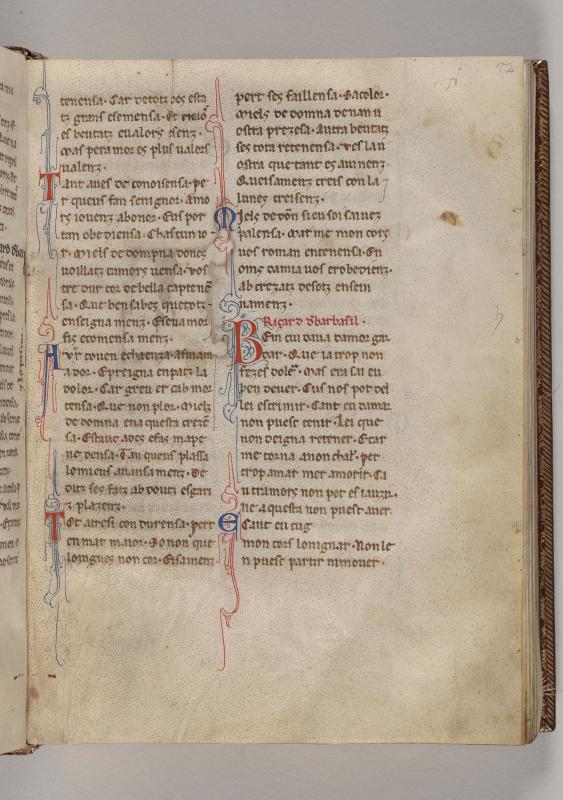 72
tenensa. Car detotz bes esta
tz grans esemensa. Et
es beutatz eualors esenz.
Mas pera mor es plus ualens
ualenz.
Tant aues de conoisensa. pe
r queus fam senignor. Amo
rs iouenz abonor. Eus por
tam obediensa. Chascun io
r. Miels de dompna donez
uoillatz camors uensa. vos
tre dur cor de bella captenē
sa. Que ben sabez quetotz
enseigna menz. Eseua mor
fiz ecomensa menz.
couen echaenza. Asmam
ador. Epreigna en patz la
dolor. Car greu er cab mor
tensa. Que non plor. Mielz
de domna ena questa crezē
sa. Estauc ades
ne densa. Tan queus plassa
lomieus auansa menz. De
outz ses fatz ab douz esgari
z plazenz.
Tot atresi con durensa. pert
en mar maior. So non que
loingues non cor. Eisament
pert ses faillensa. Sacolor.
Mielz de domna denan u
ostra prezesa. Autra beutatz
ses tota retenensa. ves lau
ostra que tant es auinenz.
Queisamenz creis con la
lunez creisenz.
Mielz de dōn si eu soi san uez
palensa. Mar me mon cors
uos roman entenensa. En
oms camia uos erobedienz.
ab crezatz desotz ensein
namenz.
Ricard d barbasil.
Ben cui daua damor gar
dar. Que ia trop non
fezes dolē. Mas era sai eu
ben deuer. Cus nos pot del
lei escrimir. Cant eu damar
non puesc tenir. Lei que
non deigna retener. Ecar
me torna anon chal. per
trop amar mer amorir. Ca
utramors non pot es iauzir.
ne aquesta non puesc auer.
E Cant eu cug
mon cors loingnar. Non le
n puesc partir ni mouer.